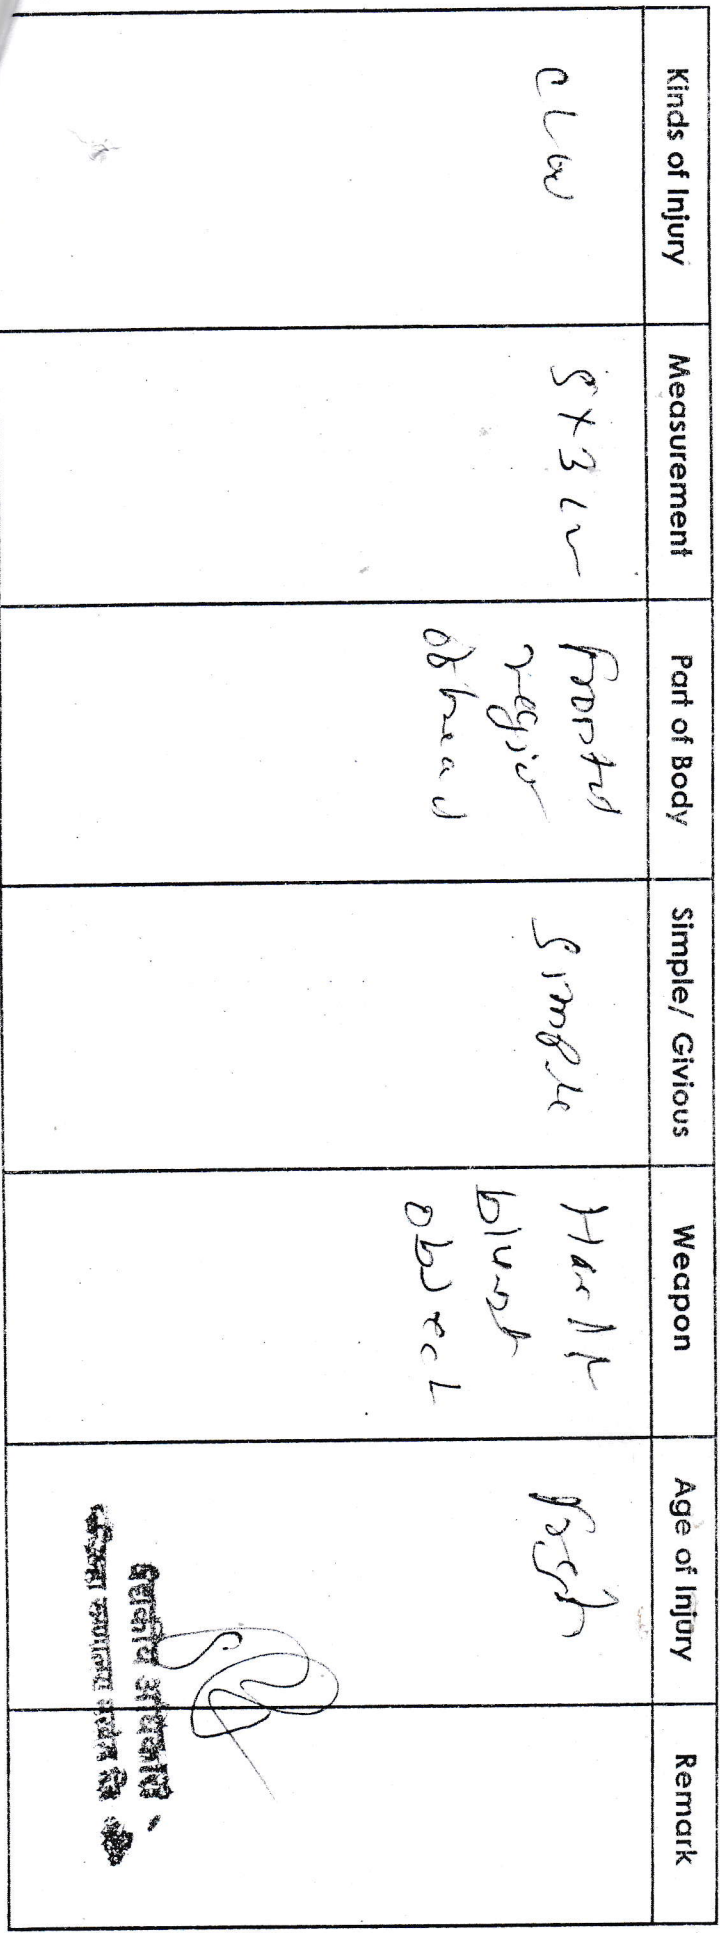 Kinds of Injury
Measurement
Part of Body
Simple/ Givious
Weapon
Age of Injury
Remark
CLW
5 x 3 cm
frontal
region
of head
Simple
Hard
blunt
object
fresh
वैद्यकीय अधिकारी